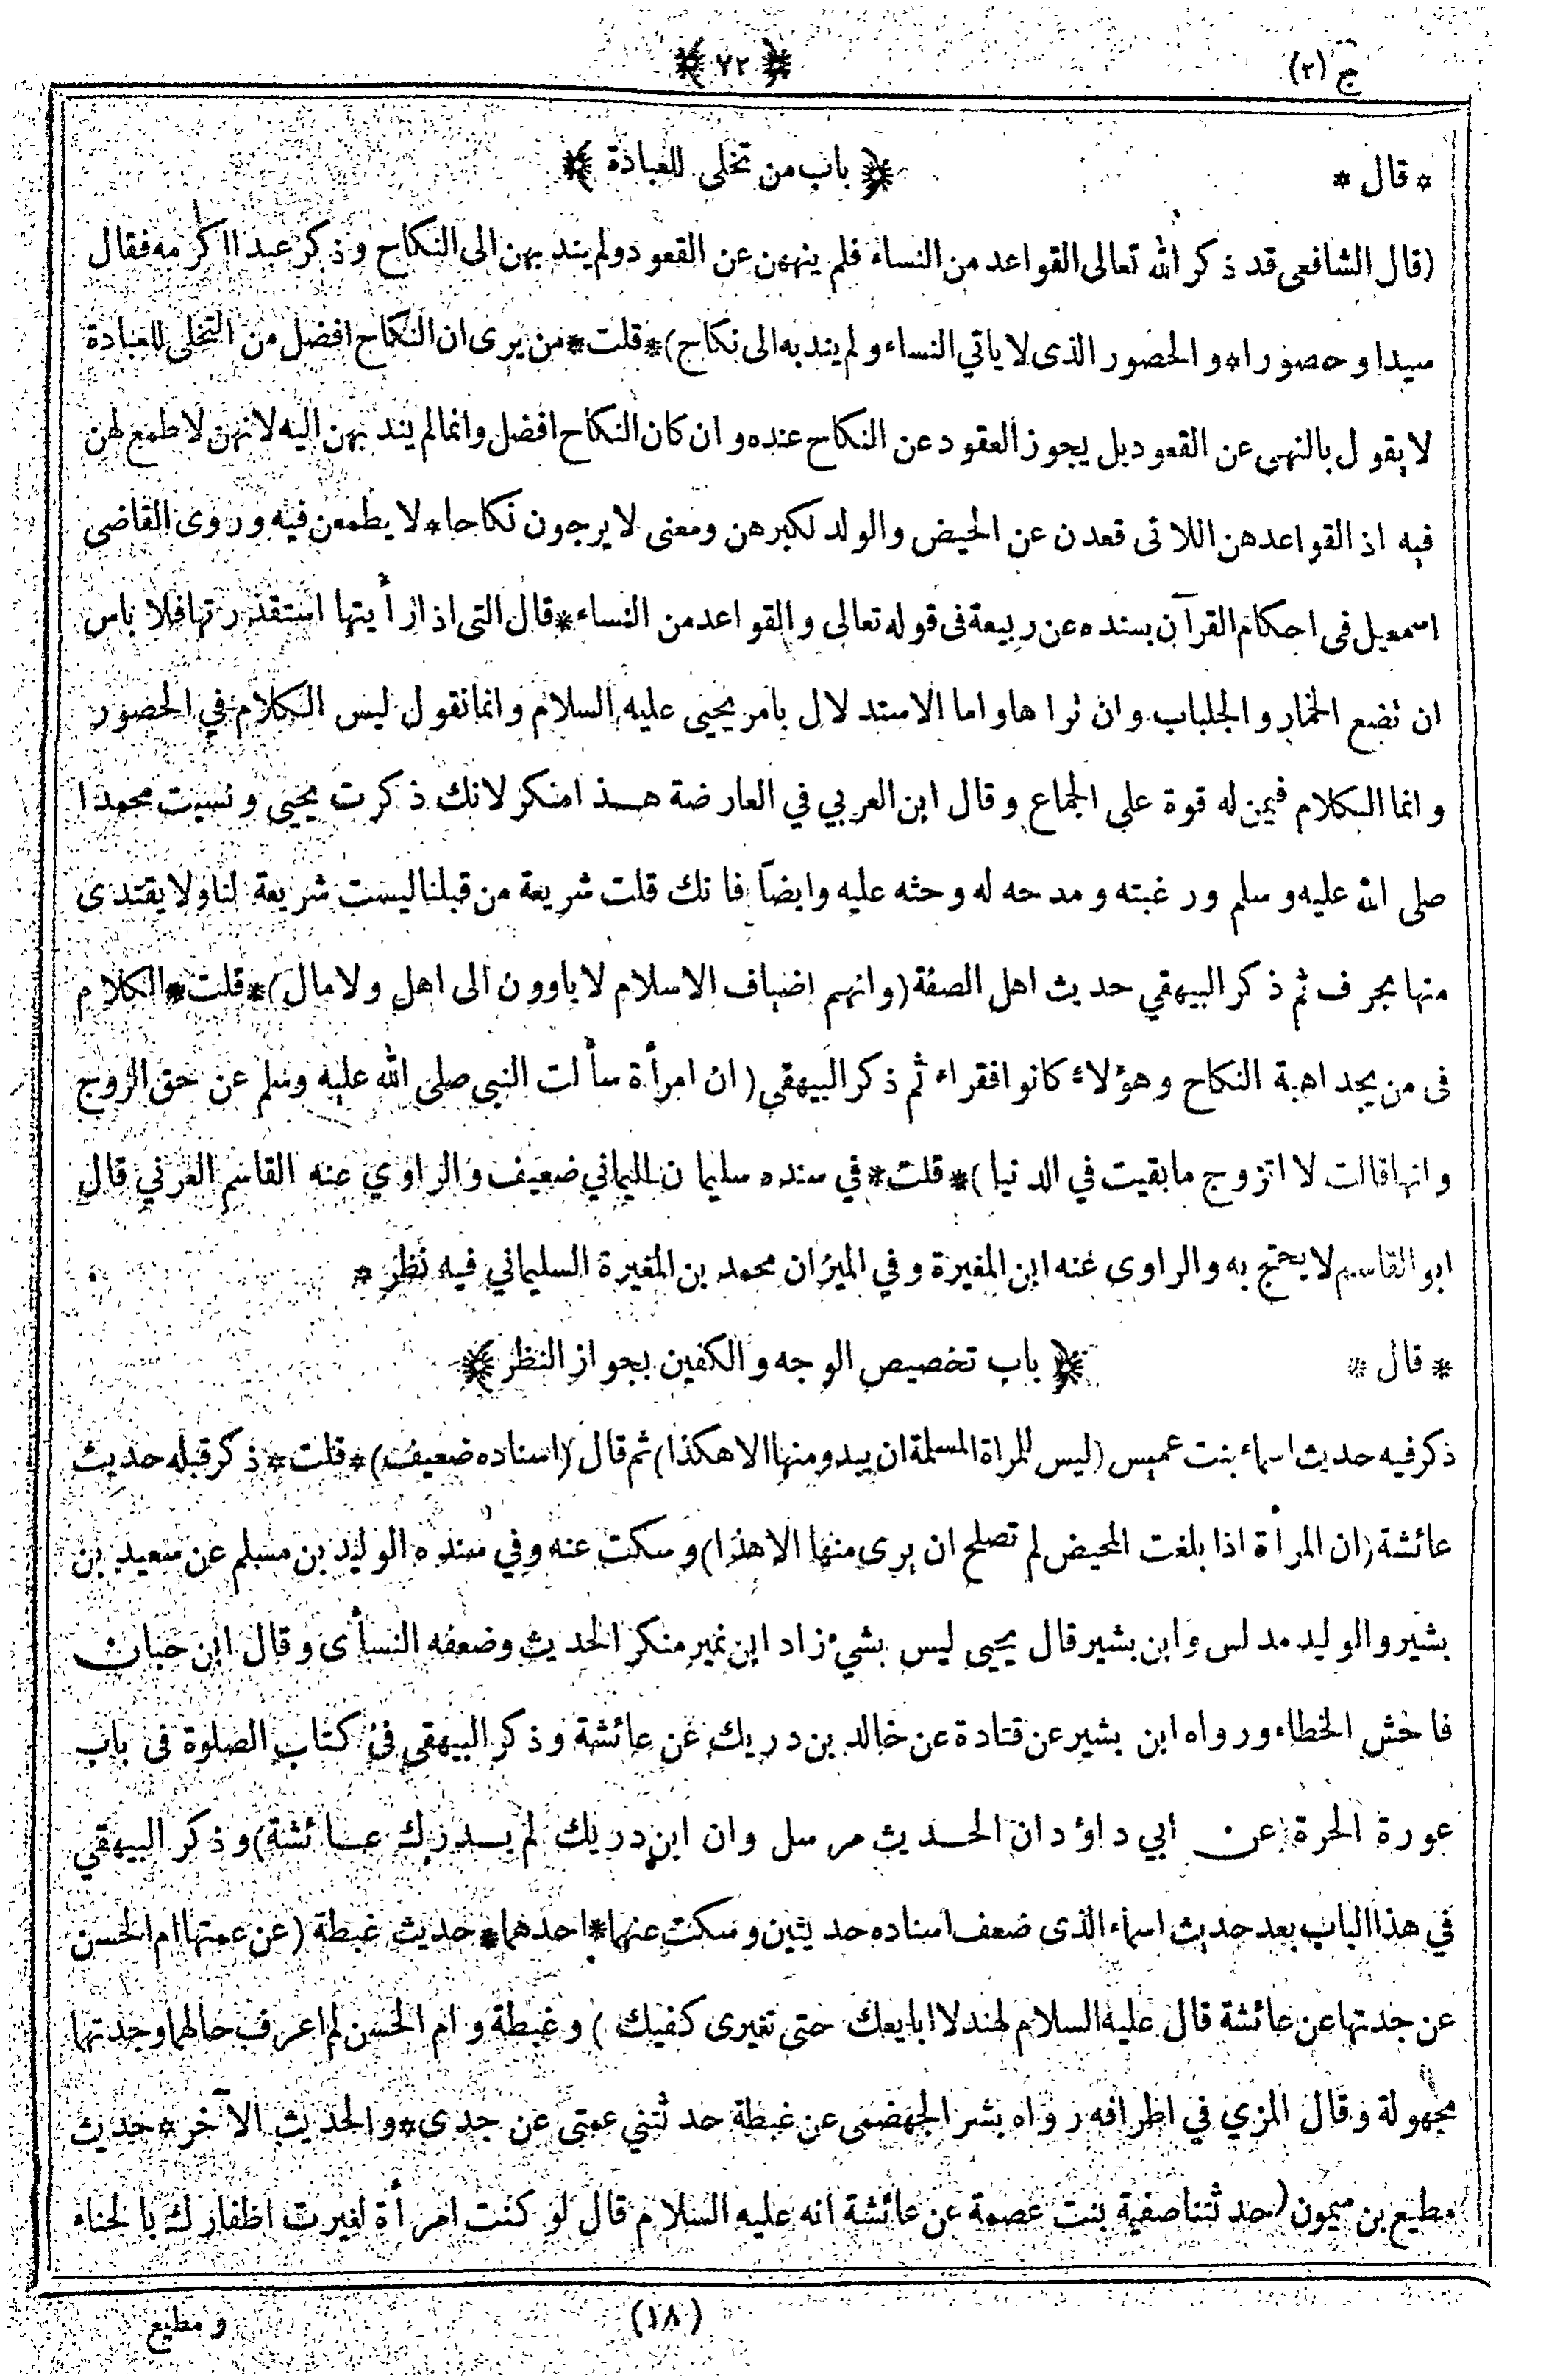 ج (٢)
﴿ ٧٢ ﴾
* قال * ﴿ باب من تخلى للعبادة ﴾
(قال الشافعى قد ذكر الله تعالى القواعد من النساء فلم ينههن عن القعود ولم يندبهن الى النكاح وذكر عبدا اكرمه فقال
سيدا وحصورا* والحصور الذى لا ياتي النساء ولم يندبه الى نكاح) *قلت* من يرى ان النكاح افضل من التخلى للعبادة
لا يقول بالنهى عن القعود بل يجوز العقود عن النكاح عنده وان كان النكاح افضل وانما لم يندبهن اليه لانهن لا طمع لهن
فيه اذ القواعد هن اللاتى قعدن عن الحيض والولد لكبرهن ومعنى لا يرجون نكاحا* لا يطمعن فيه وروى القاضى
اسمعيل فى احكام القرآن بسنده عن ربيعة فى قوله تعالى والقواعد من النساء* قال التى اذا رأيتها استقذرتها فلا باس
ان تضع الخمار والجلباب وان تراها واما الاستدلال بامر يحيى عليه السلام وانما نقول ليس الكلام في الحصور
وانما الكلام فيمن له قوة على الجماع وقال ابن العربي في العارضة هذا منكر لانك ذكرت يحيى ونسيت محمدا
صلى الله عليه وسلم ورغبته ومدحه له وحثه عليه وايضاً فانك قلت شريعة من قبلنا ليست شريعة لنا ولا يقتدى
منها بحرف ثم ذكر البيهقي حديث اهل الصفة (وانهم اضياف الاسلام لا ياوون الى اهل ولا مال) *قلت* الكلام
فى من يجد اهبة النكاح وهؤلاء كانوا فقراء ثم ذكر البيهقي (ان امرأة سألت النبي صلى الله عليه وسلم عن حق الزوج
وانها قالت لا اتزوج ما بقيت في الدنيا) *قلت* في سنده سليمان اليماني ضعيف والراوي عنه القاسم العرني قال
ابو القاسم لا يحتج به والراوى عنه ابن المغيرة وفي الميزان محمد بن المغيرة السليماني فيه نظر *
* قال * ﴿ باب تخصيص الوجه والكفين بجواز النظر ﴾
ذكر فيه حديث اسماء بنت عميس (ليس للمراة المسلمة ان يبدو منها الا هكذا) ثم قال (اسناده ضعيف) *قلت* ذكر قبله حديث
عائشة (ان المرأة اذا بلغت المحيض لم تصلح ان يرى منها الا هذا) وسكت عنه وفي سنده الوليد بن مسلم عن سعيد بن
بشير والوليد مدلس وابن بشير قال يحيى ليس بشيء زاد ابن نمير منكر الحديث وضعفه النسأى وقال ابن حبان
فاحش الخطاء ورواه ابن بشير عن قتادة عن خالد بن دريك عن عائشة وذكر البيهقي فى كتاب الصلوة فى باب
عورة الحرة (عن ابي داؤد ان الحديث مرسل وان ابن دريك لم يدرك عائشة) وذكر البيهقي
في هذا الباب بعد حديث اسماء الذى ضعف اسناده حديثين وسكت عنهما* احدهما* حديث غبطة (عن عمتها ام الحسن
عن جدتها عن عائشة قال عليه السلام لهند لا ابايعك حتى تغيرى كفيك) وغبطة وام الحسن لم اعرف حالهما وجدتها
مجهولة وقال المزي في اطرافه رواه بشر الجهضمى عن غبطة حدثتني عمتى عن جدى* والحديث الآخر* حديث
مطيع بن ميمون (حدثتنا صفية بنت عصمة عن عائشة انه عليه السلام قال لو كنت امرأة لغيرت اظفارك بالحناء
(١٨)
ومطيع